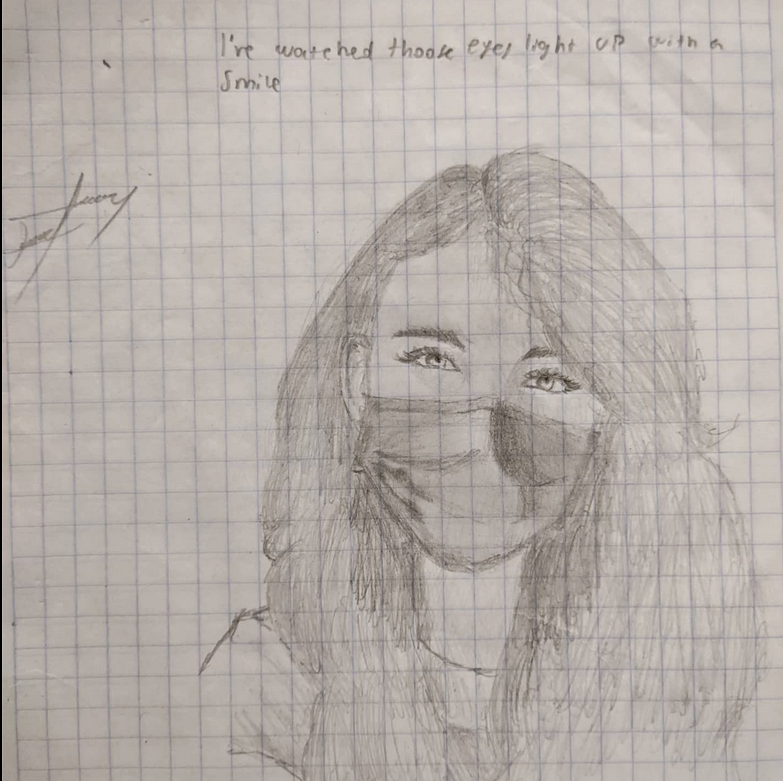 I've watched thoose eyes light up with a
Smile